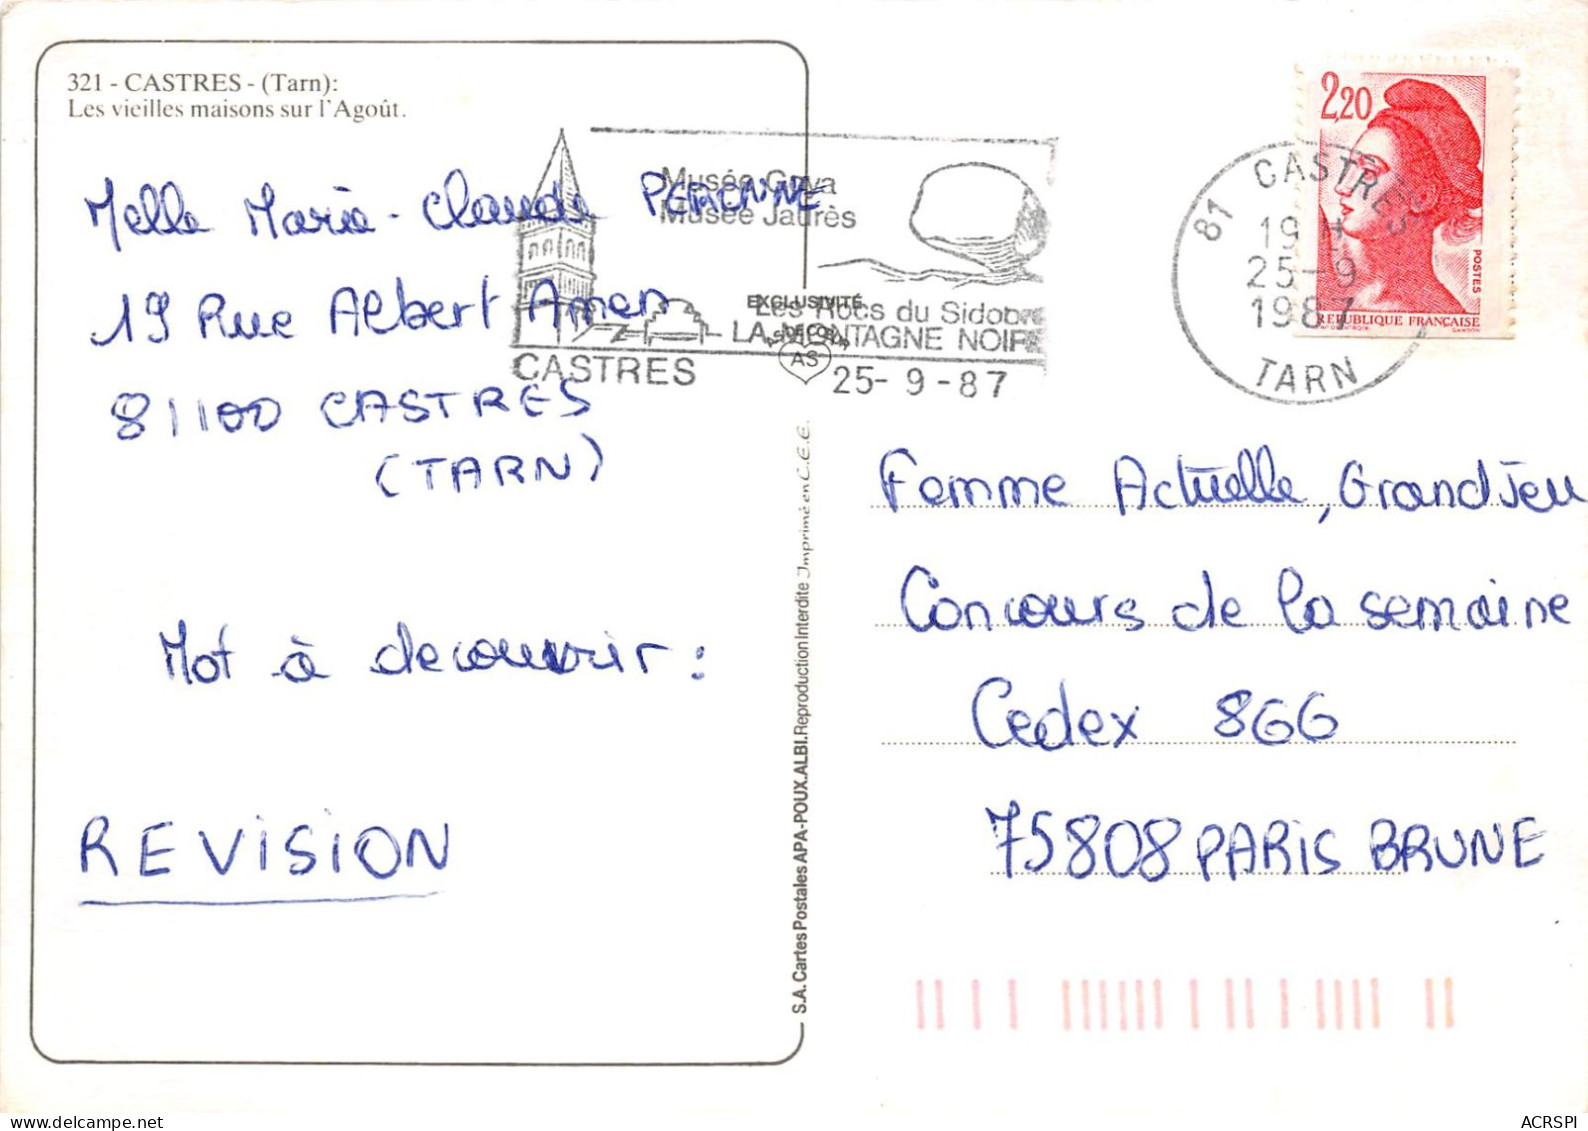 321 - CASTRES - (Tarn):
Les vieilles maisons sur l'Agoût.
Melle Marie-Claude PERONNE
19 Rue Albert Aman
81100 CASTRES
(TARN)
Mot à decouvrir :
REVISION
Musée Goya
Musée Jaurès
Les Rocs du Sidobre
LA MONTAGNE NOIRE
CASTRES
25-9-87
EXCLUSIVITÉ
AS
S.A. Cartes Postales APA-POUX.ALBI.Reproduction Interdite Imprimé en C.E.E.
2,20
POSTES
REPUBLIQUE FRANÇAISE
81 CASTRES
19 H
25-9
1987
TARN
Femme Actuelle, Grand Jeu
Concours de la semaine
Cedex 866
75808 PARIS BRUNE
ACRSPI